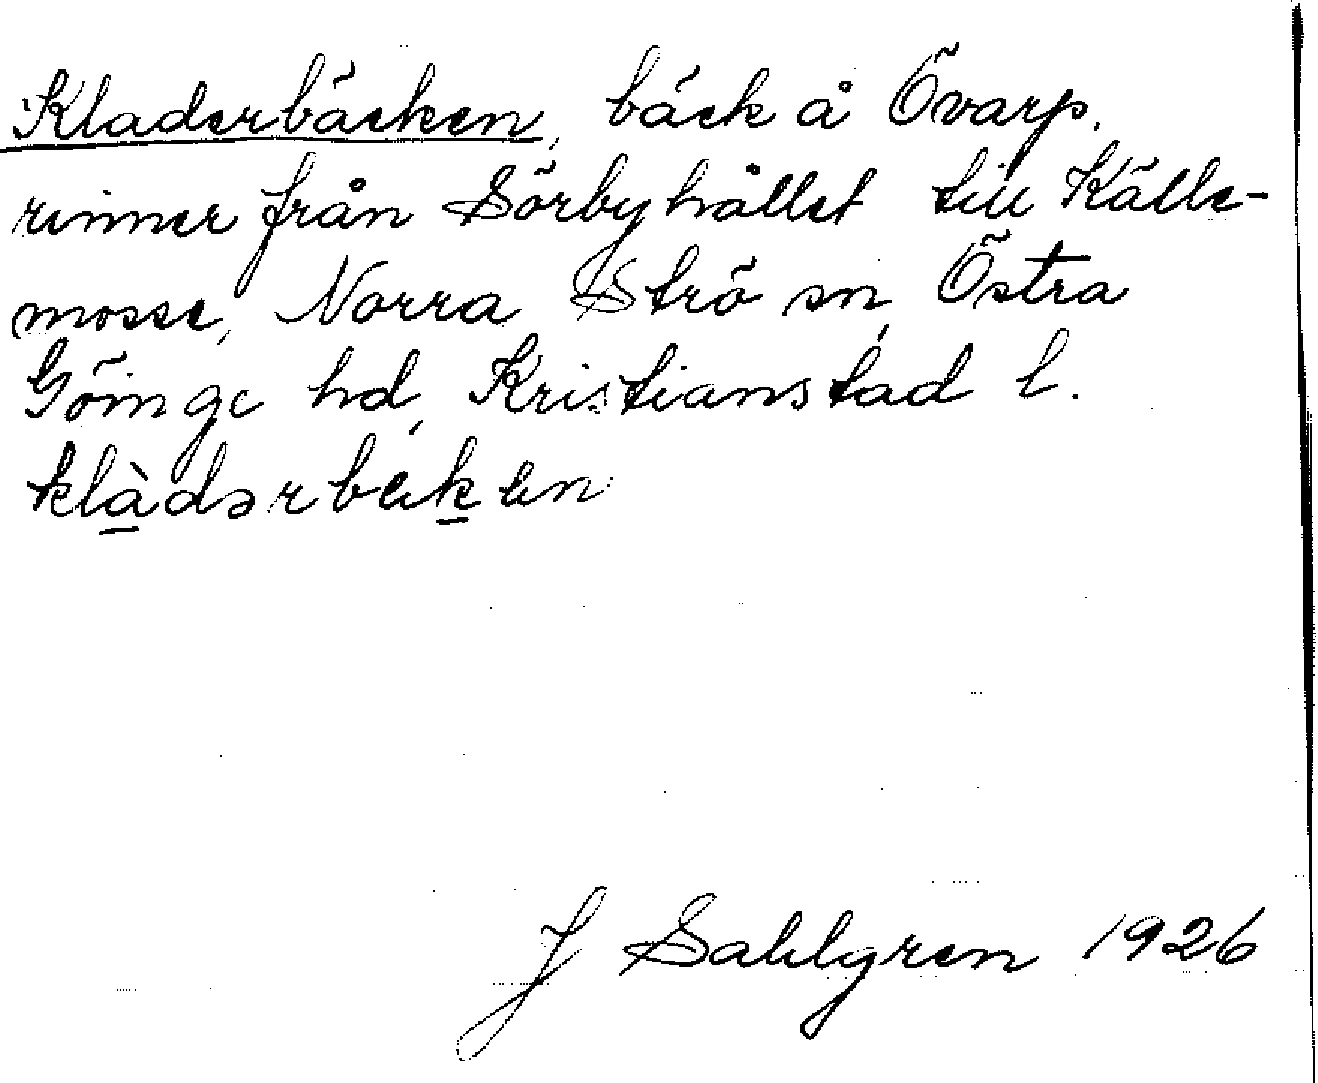 Kladerbäcken, bäck å Övarp,
rinner från Sörbyhållet till Källe-
mosse, Norra Strö sn, Östra
Göinge hd, Kristianstad l.
J Sahlgren 1926